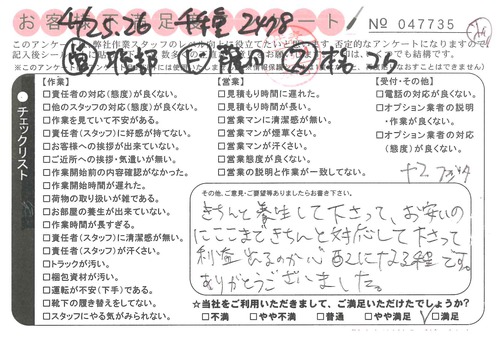 お客様満足 アンケート
№ 047735
4/25.26 2478
【作業】
□責任者の対応(態度)が良くない。
□他のスタッフの対応(態度)が良くない。
□作業を見ていて不安がある。
□責任者(スタッフ)に好感が持てない。
□お客様への挨拶が出来ていない。
□ご近所への挨拶・気遣いが無い。
□作業開始前の内容確認がなかった。
□作業開始時間が遅れた。
□荷物の取り扱いが雑である。
□お部屋の養生が出来ていない。
□作業時間が長すぎる。
□責任者(スタッフ)に清潔感が無い。
□責任者(スタッフ)が汗くさい。
□トラックが汚い。
□梱包資材が汚い。
□運転が不安(下手)である。
□靴下の履き替えをしてない。
□スタッフにやる気がみられない。
チェックリスト
【営業】
□見積もり時間に遅れた。
□見積もり時間が長い。
□営業マンに清潔感が無い。
□営業マンが煙草くさい。
□営業マンが汗くさい。
□営業態度が良くない。
□営業の説明と作業が一致してない。
【受付・その他】
□電話の対応が良くない。
□オプション業者の説明・作業が良くない。
□オプション業者の対応(態度)が良くない。
その他、ご意見・ご要望等ありましたらお書き下さい。
きちんと養生して下さって、お安いの
にここまできちんと対応して下さって
利益出るのか心配になる程です。
ありがとうございました。
☆当社をご利用いただきまして、ご満足いただけたでしょうか?
□不満 □やや不満 □普通 □やや満足 □満足